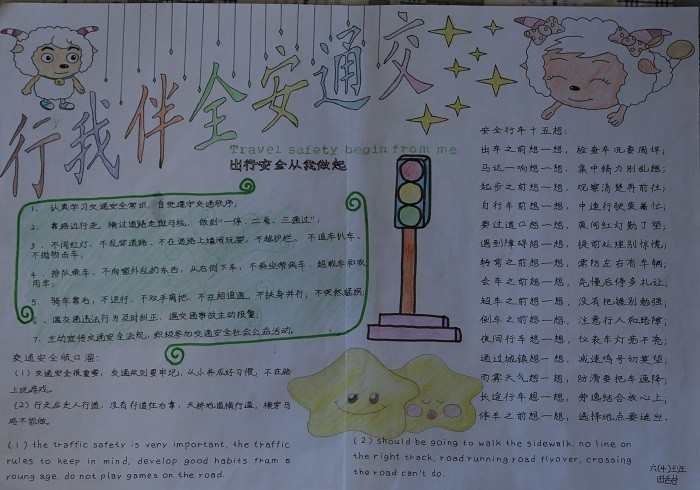 行我伴全安通交
Travel safety begin from me
出行安全从我做起
1、认真学习交通安全常识，自觉遵守交通秩序。
2、靠路边行走，横过道路走斑马线，做到"一停、二看、三通过"；
3、不闯红灯、不乱穿道路、不在道路上嬉闹玩耍、不越护栏、不追车扒车、
不抛物击车；
4、排队乘车、不向窗外乱扔东西，从右侧下车，不乘坐带病车、超载车和农
用车；
5、骑车靠右，不逆行、不双手离把、不互相追逐、不扶身并行，不突然猛拐；
6、遇交通违法行为及时纠正、遇交通事故主动报警；
7、主动宣传交通安全法规，积极参加交通安全社会公益活动。
交通安全顺口溜：
(1)交通安全很重要，交通规则要牢记，从小养成好习惯，不在路
上玩游戏。
(2)行走应走人行道，没有行道往右靠，天桥地道横行道，横穿马
路不能做。
(1) the traffic safety is very important, the traffic
rules to keep in mind, develop good habits fram a
young age, do not play games on the road.
(2) should be going to walk the sidewalk, no line on
the right track, road running road flyover, crossing
the road can't do.
安全行车十五想：
出车之前想一想，检查车况要周详；
马达一响想一想，集中精力别乱想；
起步之前想一想，观察清楚再前往；
自行车前想一想，中速行驶莫着忙；
要过道口想一想，莫闯红灯勤了望；
遇到障碍想一想，提前处理别惊慌；
转弯之前想一想，需防左右有车辆；
会车之前想一想，先慢后停多礼让；
超车之前想一想，没有把握别勉强；
倒车之前想一想，注意行人和路障；
夜间行车想一想，仪表车灯亮不亮；
通过城镇想一想，减速鸣号切莫望；
雨雾天气想一想，防滑要把车速降；
长途行车想一想，劳逸结合放心上；
停车之前想一想，选择地点要适当。
六(4)班